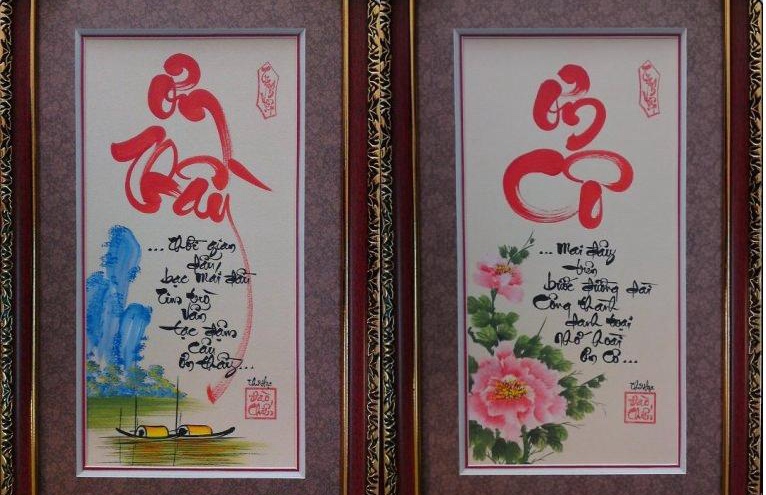 Ơn
Thầy
... thời gian
dẫu
bạc mái đầu
Tim trò
vẫn
tạc đậm
câu
ơn thầy...
Ơn
Cô
... Mai đây
trên
bước đường dài
Công thành
danh toại
nhớ hoài
ơn Cô...